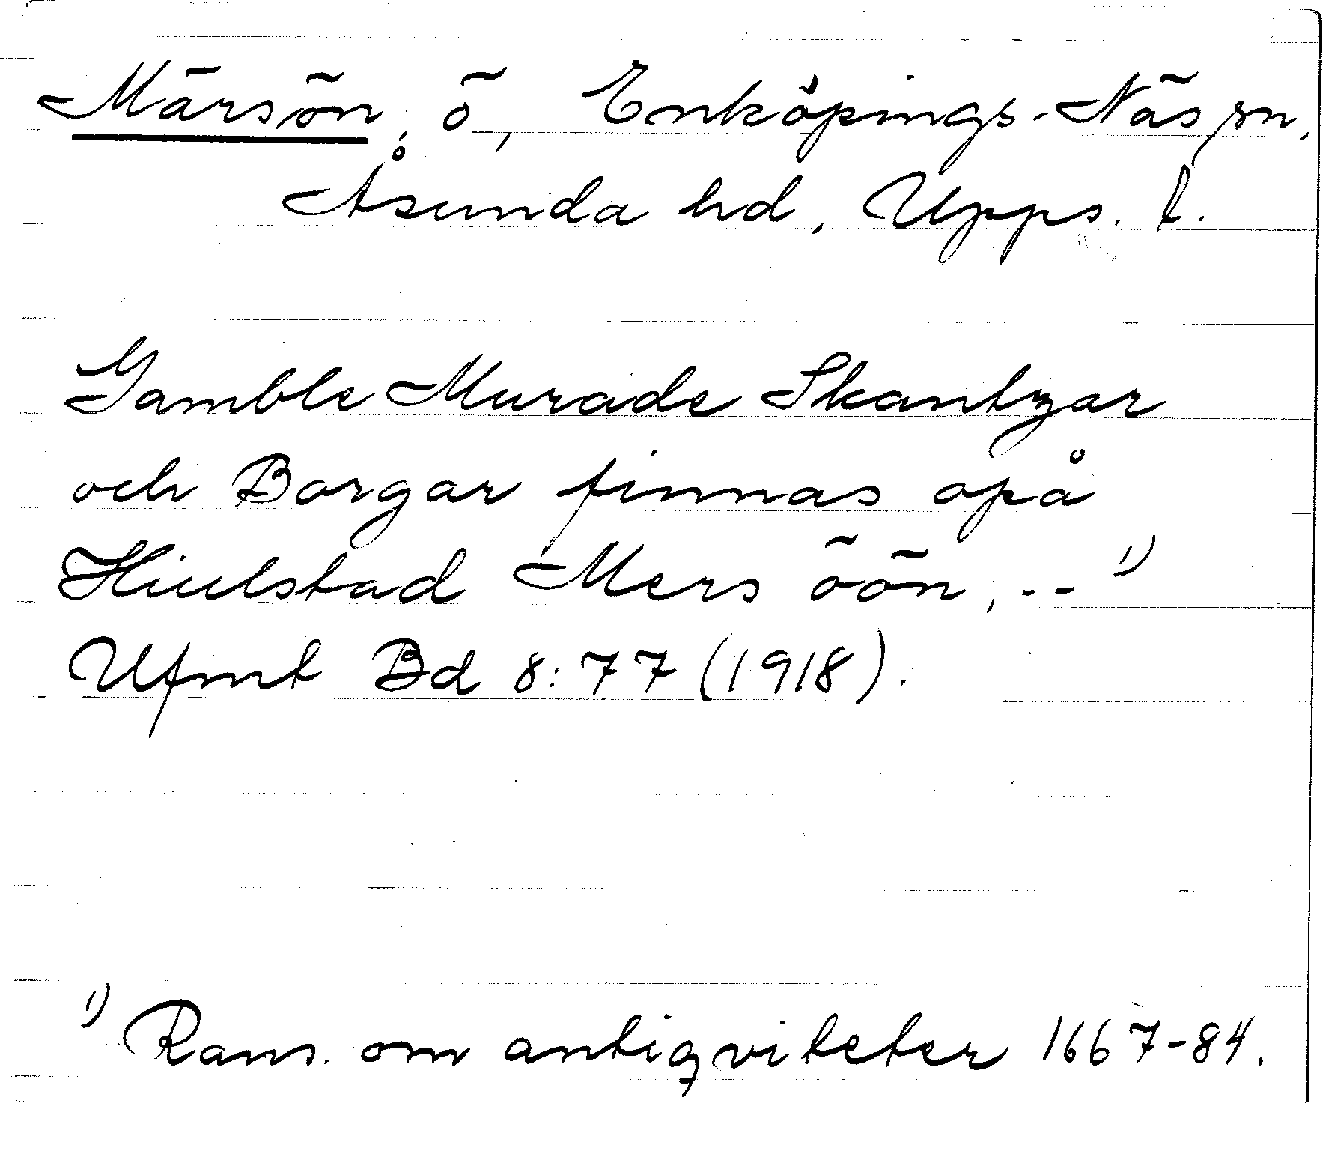 Märsön, ö, Enköpings-Näs sn,
Åsunda hd, Upps. l.
Gamble Murade Skantzar
och Borgar finnas opå
Hiulstad Mers öön, -- 1)
Ufmt Bd 8:77 (1918).
1) Rans. om antiqviteter 1667-84.